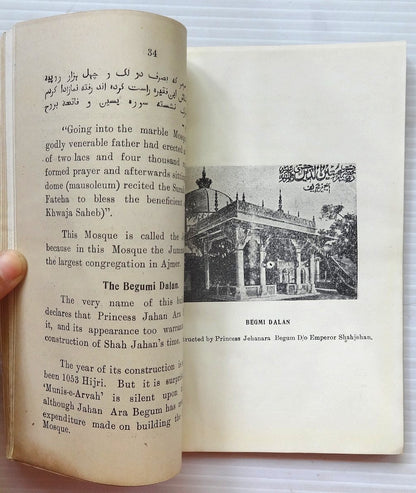 34
که بصرف دو لک و چهل هزار روپیه
این فقیره راست کرده اند رفته نمازادا کردیم
نشسته سوره یسین و فاتحه بروح
"Going into the marble Mosq
godly venerable father had erected a
of two lacs and four thousand
formed prayer and afterwards sitting
dome (mausoleum) recited the Sura
Fateha to bless the beneficent
Khwaja Saheb)".
This Mosque is called the J
because in this Mosque the Jumma
the largest congregation in Ajmer.
The Begumi Dalan.
The very name of this bui
declares that Princess Jahan Ara
it, and its appearance too warran
construction of Shah Jahan's time.
The year of its construction is
been 1053 Hijri. But it is surpris
'Munis-e-Arvah' is silent upon
although Jahan Ara Begum has
expenditure made on building the
Mosque.
BEGMI DALAN
tructed by Princess Jehanara Begum D/o Emperor Shahjehan.